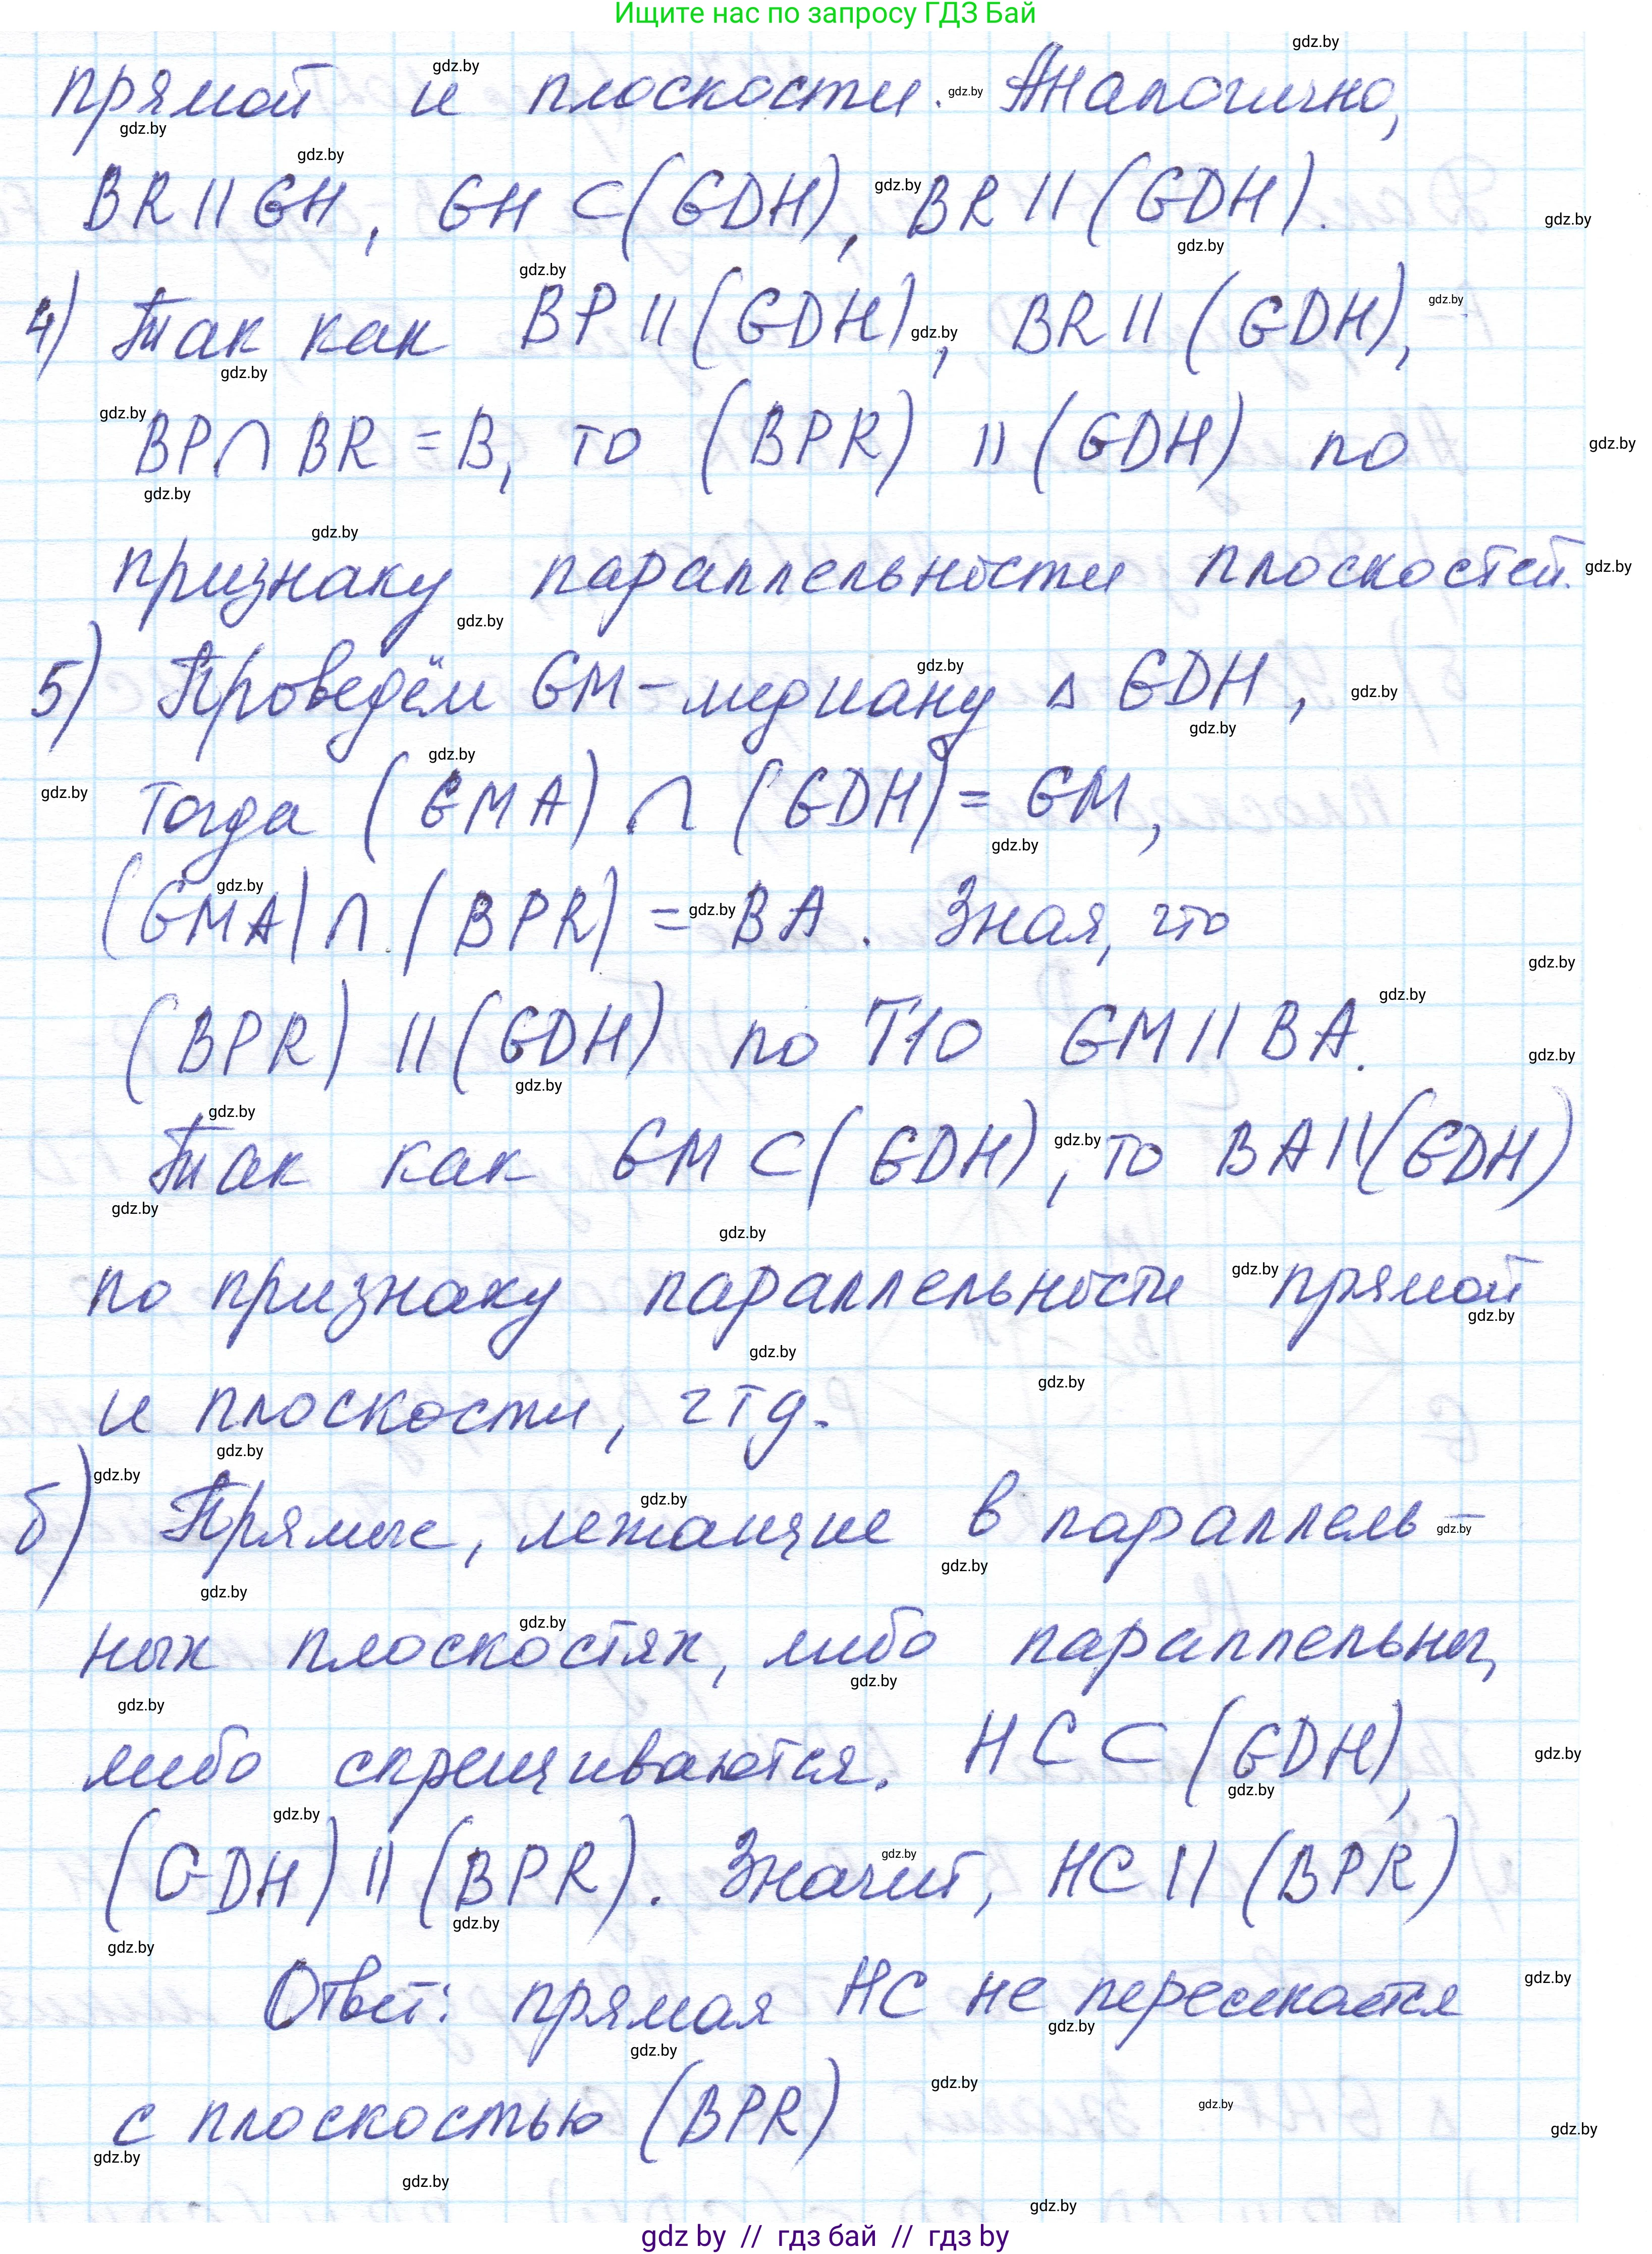 Ищите нас по запросу ГДЗ Бай
прямой и плоскости. Аналогично,
BR || GH, GH ⊂ (GDH), BR || (GDH).
4) Так как BP || (GDH), BR || (GDH),
BP ∩ BR = B, то (BPR) || (GDH) по
признаку параллельности плоскостей.
5) Проведём GM – медиану Δ GDH,
тогда (GMA) ∩ (GDH) = GM,
(GMA) ∩ (BPR) = BA. Зная, что
(BPR) || (GDH) по Т10 GM || BA.
Так как GM ⊂ (GDH), то BA || (GDH)
по признаку параллельности прямой
и плоскости, чтд.
б) Прямые, лежащие в параллель-
ных плоскостях, либо параллельны,
либо скрещиваются. HC ⊂ (GDH),
(GDH) || (BPR). Значит, HC || (BPR)
Ответ: прямая HC не пересекается
с плоскостью (BPR)
gdz by // гдз бай // гдз by